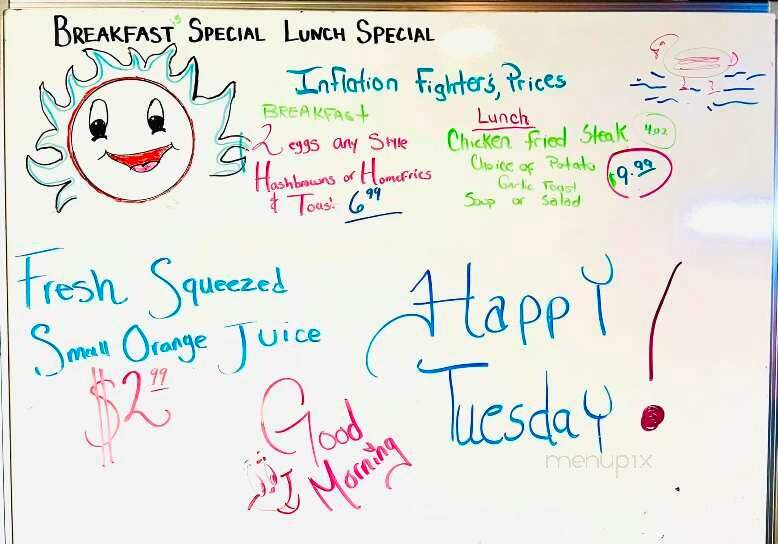 BREAKFAST SPECIAL LUNCH SPECIAL
Inflation Fighter's, Prices
BREAKFAST
2 eggs any Style
Hashbrowns or Homefries
& Toast 6.99
Lunch
Chicken Fried Steak 4oz
Choice of Potato
Garlic Toast
Soup or Salad
$9.99
Fresh Squeezed
Small Orange Juice
$2.99
Happy
Tuesday!
Good
Morning
menupix